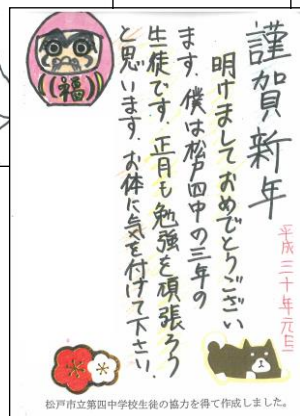 謹賀新年
明けましておめでとうござい
ます。僕は松戸四中の三年の
生徒です。正月も勉強を頑張ろう
と思います。お体に気を付けて下さい。
平成三十年元旦
福
松戸市立第四中学校生徒の協力を得て作成しました。